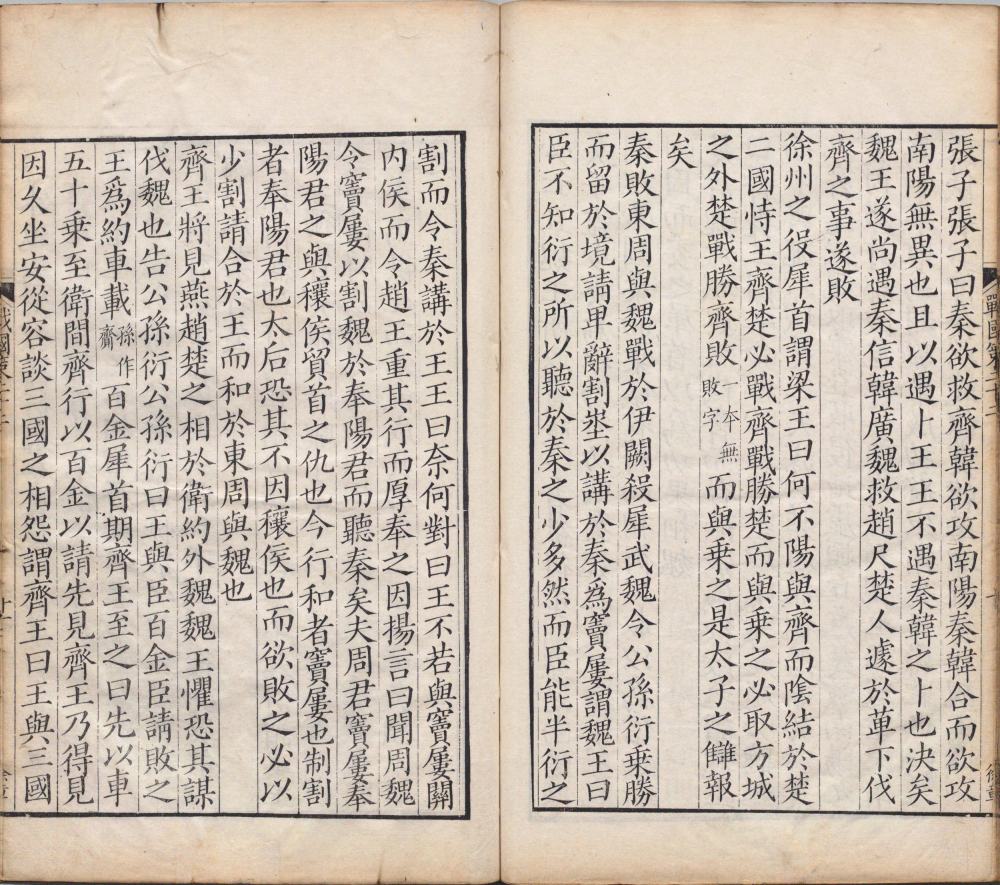 張子張子曰秦欲救齊韓欲攻南陽秦韓合而欲攻
南陽無異也且以遇卜王王不遇秦韓之卜也決矣
魏王遂尚遇秦信韓廣魏救趙尺楚人遽於萆下伐
齊之事遂敗
徐州之役犀首謂梁王曰何不陽與齊而陰結於楚
二國恃王齊楚必戰齊戰勝楚而與乘之必取方城
之外楚戰勝齊敗一本無敗字而與乘之是太子之讎報
矣
秦敗東周與魏戰於伊闕殺犀武魏令公孫衍乗勝
而留於境請𤰞辭割埊以講於秦爲竇屢謂魏王曰
臣不知衍之所以聽於秦之少多然而臣能半衍之
戰國策二十三
割而令秦講於王王曰奈何對曰王不若與竇屢關
内侯而令趙王重其行而厚奉之因揚言曰聞周魏
令竇屢以割魏於奉陽君而聽秦矣夫周君竇屢奉
陽君之與穰侯貿首之仇也今行和者竇屢也制割
者奉陽君也太后恐其不因穰侯也而欲敗之必以
少割請合於王而和於東周與魏也
齊王將見燕趙楚之相於衛約外魏魏王懼恐其謀
伐魏也告公孫衍公孫衍曰王與臣百金臣請敗之
王爲約車載孫作齎百金犀首期齊王至之曰先以車
五十乗至衛間齊行以百金以請先見齊王乃得見
因久坐安從容談三國之相怨謂齊王曰王與三國